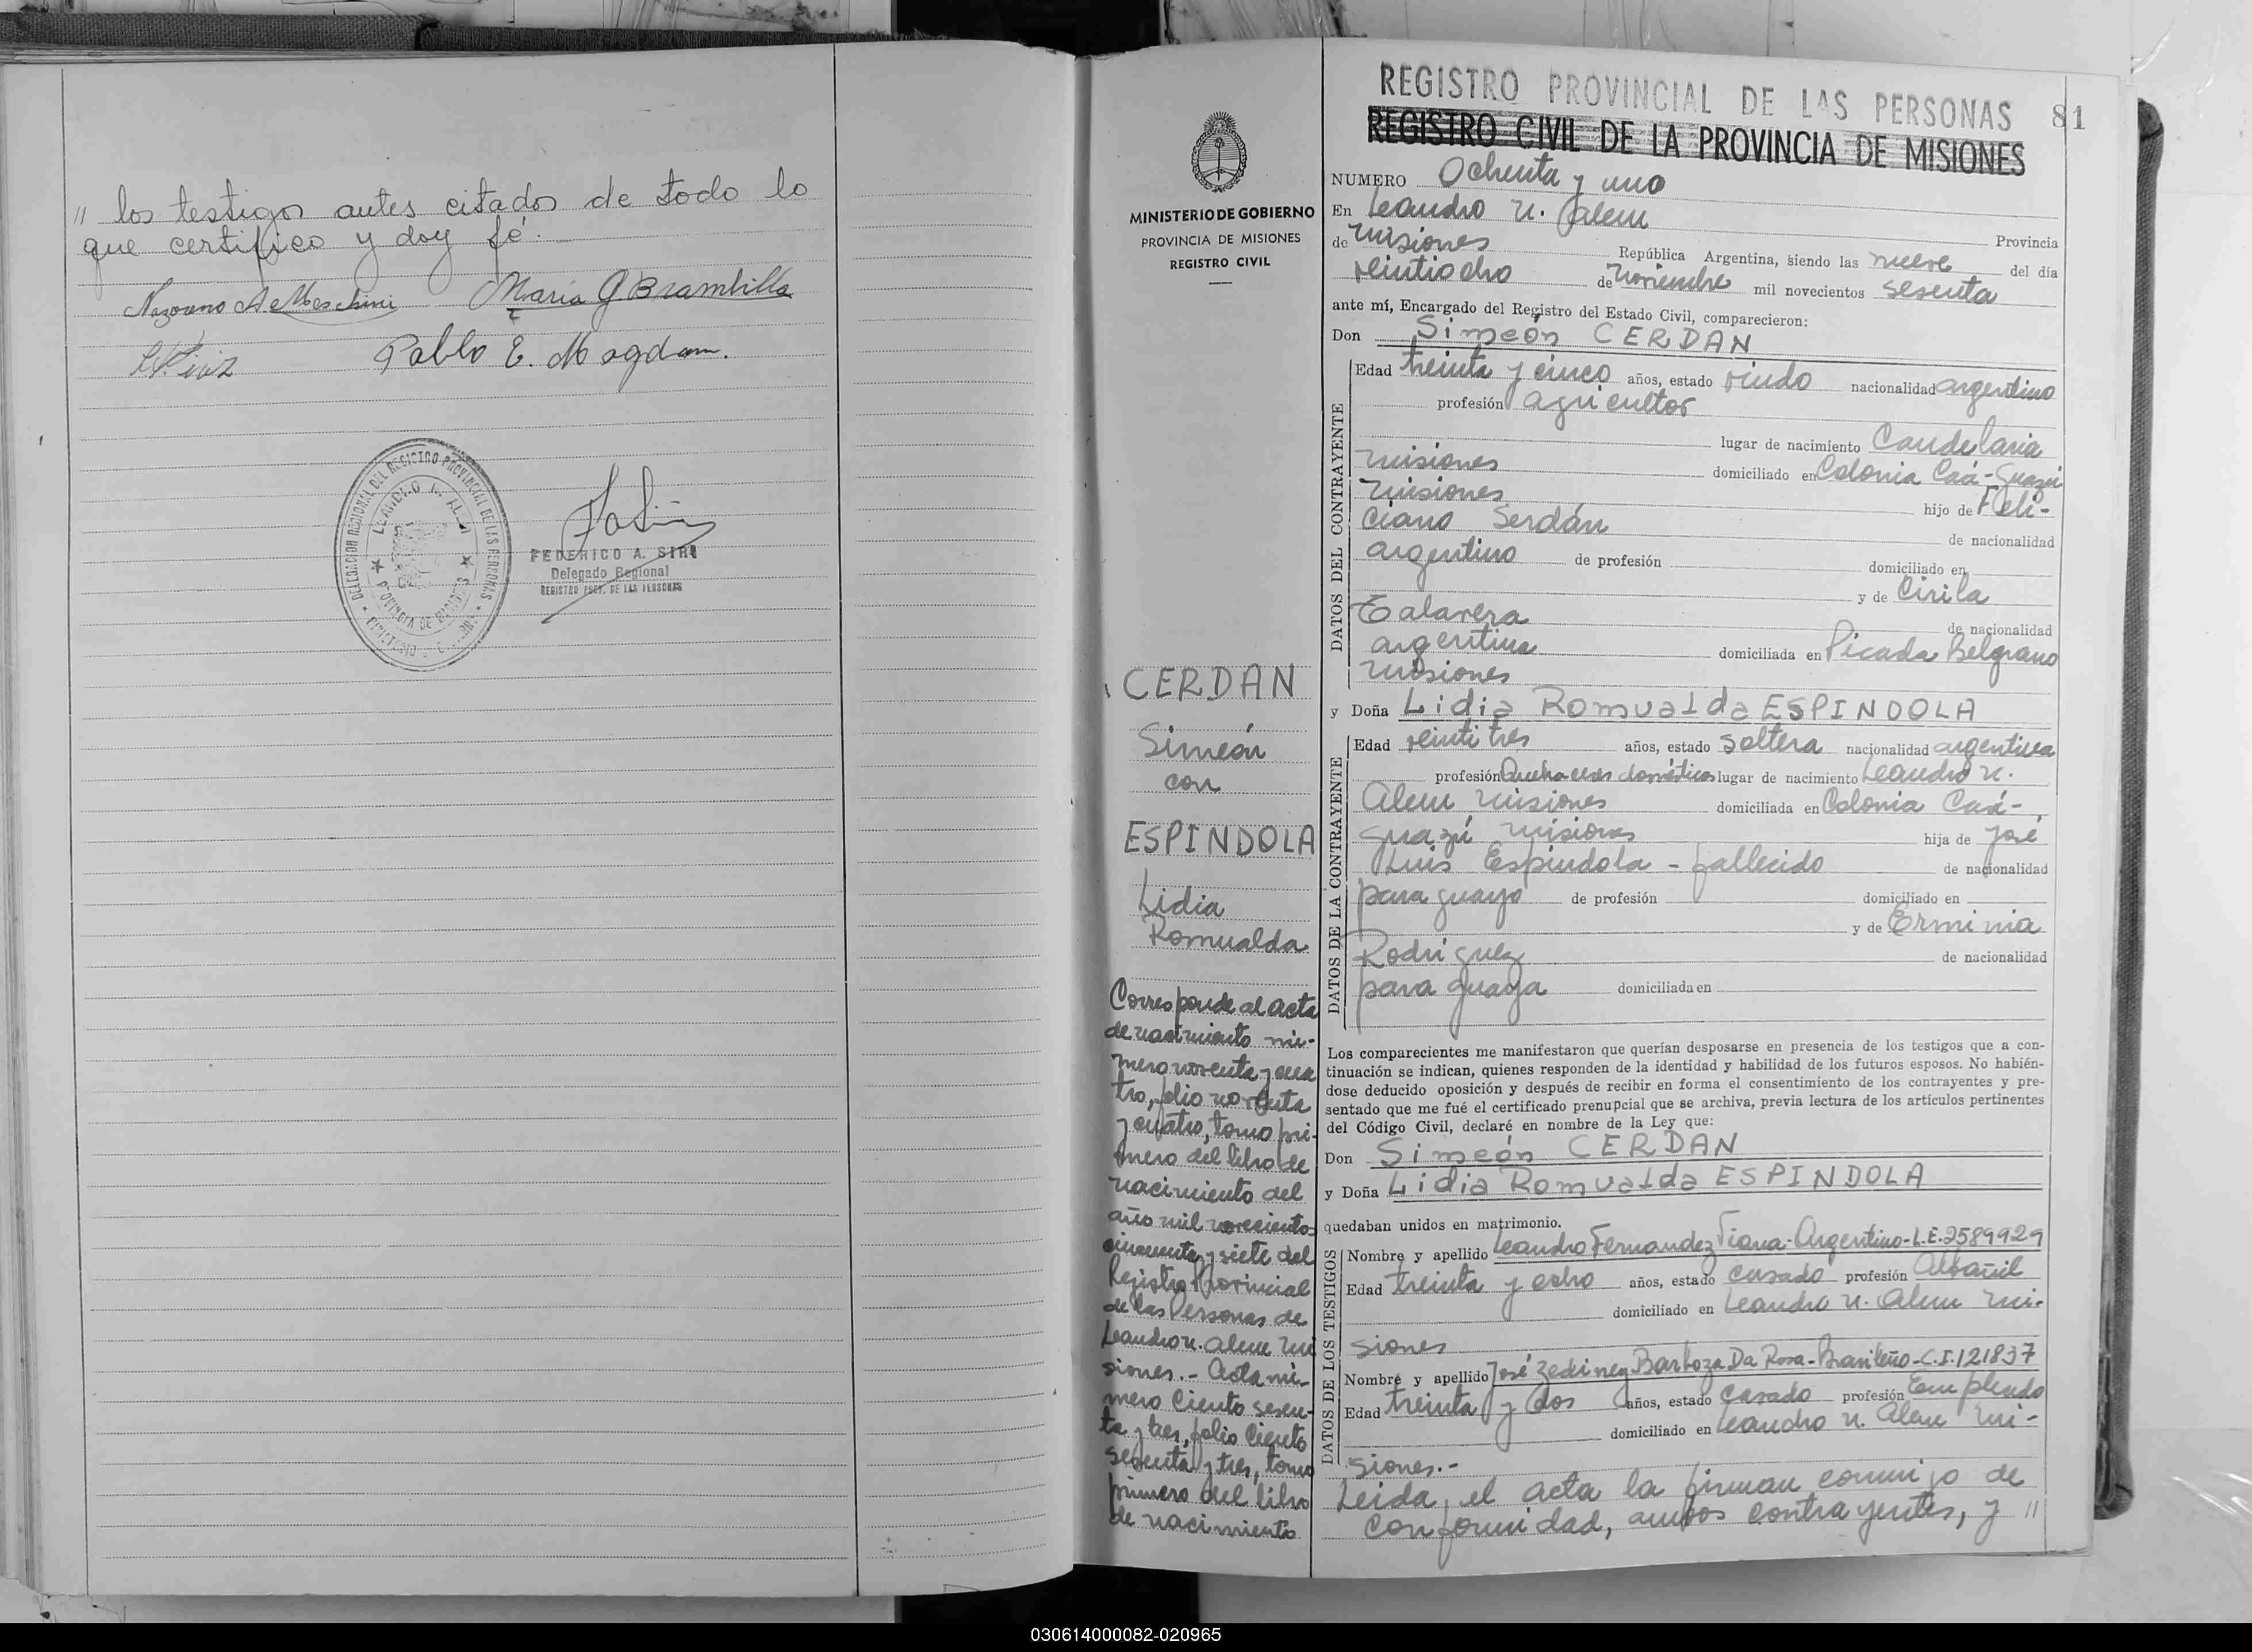 " los testigos antes citados de todo lo
que certifico y doy fé.
Nazareno A Meschini María G Brambilla
Pablo E. Magdam.
DELEGACION REGIONAL DEL REGISTRO PROVINCIAL DE LAS PERSONAS
LEANDRO N. ALEM
PROVINCIA DE MISIONES
FEDERICO A. SIRI
Delegado Regional
REGISTRO PROV. DE LAS PERSONAS
MINISTERIO DE GOBIERNO
PROVINCIA DE MISIONES
REGISTRO CIVIL
CERDAN
Simeón
con
ESPINDOLA
Lidia
Romualda
Corresponde al acta
de nacimiento nú-
mero noventa y cua
tro, folio noventa
y cuatro, tomo pri-
mero del libro de
nacimiento del
año mil novecientos
cincuenta y siete del
Registro Provincial
de las Personas de
Leandro N. Alem Mi
siones.- Acta nú-
mero Ciento sesen-
ta y tres, folio Ciento
sesenta y tres, tomo
primero del libro
de nacimiento
REGISTRO PROVINCIAL DE LAS PERSONAS 81
REGISTRO CIVIL DE LA PROVINCIA DE MISIONES
NUMERO Ochenta y uno
En Leandro N. Alem
Provincia
de Misiones República Argentina, siendo las nueve del día
veintiocho de Noviembre mil novecientos sesenta
ante mí, Encargado del Registro del Estado Civil, comparecieron:
Don Simeón CERDAN
DATOS DEL CONTRAYENTE
Edad treinta y cinco años, estado viudo nacionalidad argentino
profesión agricultor
lugar de nacimiento Candelaria
Misiones domiciliado en Colonia Caá-Guazú
Misiones hijo de Feli-
ciano Serdán de nacionalidad
argentino de profesión domiciliado en
y de Cirila
Talavera de nacionalidad
argentina domiciliada en Picada Belgrano
Misiones
y Doña Lidia Romualda ESPINDOLA
DATOS DE LA CONTRAYENTE
Edad veintitres años, estado soltera nacionalidad argentina
profesión Quehaceres domésticos lugar de nacimiento Leandro N.
Alem Misiones domiciliada en Colonia Caá-
Guazú Misiones hija de José
Luis Espindola - fallecido de nacionalidad
paraguayo de profesión domiciliado en
y de Erminia
Rodriguez de nacionalidad
paraguaya domiciliada en
Los comparecientes me manifestaron que querían desposarse en presencia de los testigos que a con-
tinuación se indican, quienes responden de la identidad y habilidad de los futuros esposos. No habién-
dose deducido oposición y después de recibir en forma el consentimiento de los contrayentes y pre-
sentado que me fué el certificado prenupcial que se archiva, previa lectura de los artículos pertinentes
del Código Civil, declaré en nombre de la Ley que:
Don Simeón CERDAN
y Doña Lidia Romualda ESPINDOLA
quedaban unidos en matrimonio.
DATOS DE LOS TESTIGOS
Nombre y apellido Leandro Fernandez Viana-Argentino-L.E.2589929
Edad treinta y ocho años, estado casado profesión Albañil
domiciliado en Leandro N. Alem Mi-
siones
Nombre y apellido José Zediney Barboza Da Rosa-Brasileño-C.I.121837
Edad treinta y dos años, estado casado profesión Empleado
domiciliado en Leandro N. Alem Mi-
siones.-
Leida, el acta la firman conmigo de
conformidad, ambos contrayentes, y "
030614000082-020965